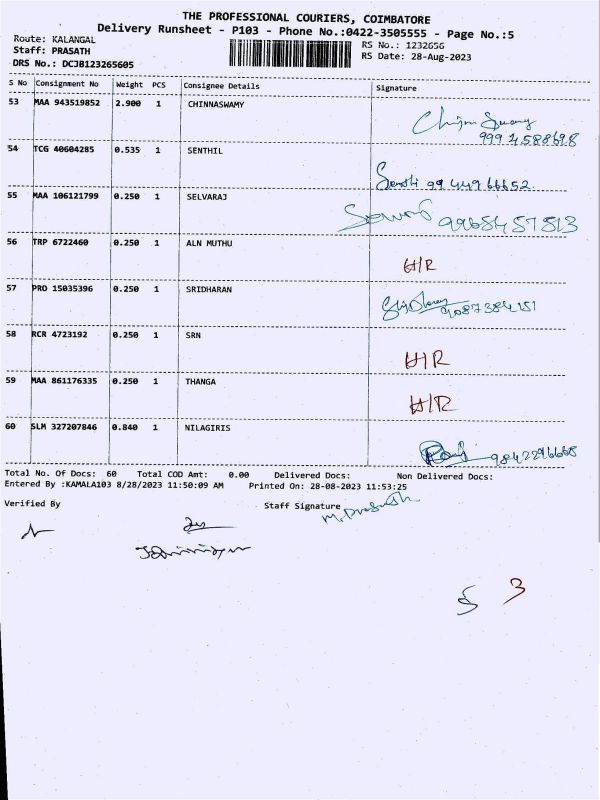 THE PROFESSIONAL COURIERS, COIMBATORE
Delivery Runsheet - P103 - Phone No.:0422-3505555 - Page No.:5
Route: KALANGAL
Staff: PRASATH
RS No.: 1232656
RS Date: 28-Aug-2023
DRS No.: DCJB123265605
S No Consignment No Weight PCS Consignee Details Signature
53 MAA 943519852 2.900 1 CHINNASWAMY
54 TCG 40604285 0.535 1 SENTHIL
Senthi 99 44966652
55 MAA 106121799 0.250 1 SELVARAJ
9965457513
56 TRP 6722460 0.250 1 ALN MUTHU
H/R
57 PRO 15035396 0.250 1 SRIDHARAN
9087384151
58 RCR 4723192 0.250 1 SRN
H/R
59 MAA 861176335 0.250 1 THANGA
H/R
60 SLM 327207846 0.840 1 NILAGIRIS
Total No. Of Docs: 60 Total COD Amt: 0.00 Delivered Docs: Non Delivered Docs:
Entered By :KAMALA103 8/28/2023 11:50:09 AM Printed On: 28-08-2023 11:53:25
Verified By Staff Signature M. Prasath
3